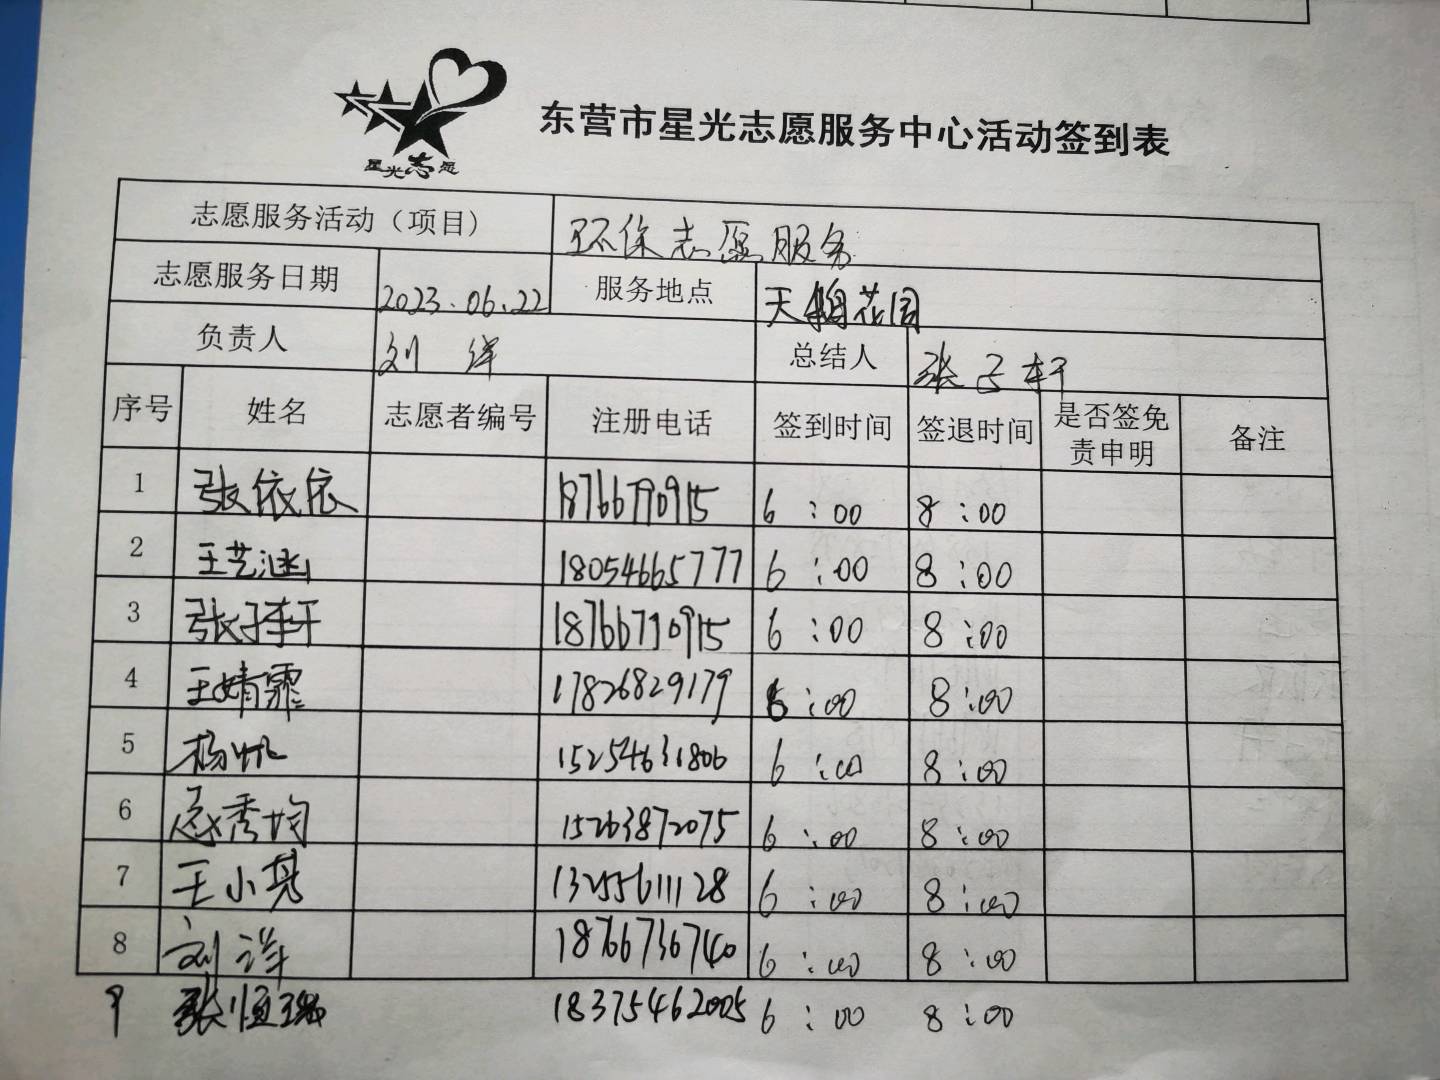 星光志愿
东营市星光志愿服务中心活动签到表
志愿服务活动（项目） 环保志愿服务
志愿服务日期 2023.06.22 服务地点 天鹅花园
负责人 刘洋 总结人 张子轩
序号 姓名 志愿者编号 注册电话 签到时间 签退时间 是否签免责申明 备注
1 张依依 18766790915 6:00 8:00
2 王艺涵 18054665777 6:00 8:00
3 张子轩 18766790915 6:00 8:00
4 王婧霏 17826829179 6:00 8:00
5 杨帆 15254631806 6:00 8:00
6 秀均 15263872075 6:00 8:00
7 王小亮 13255611128 6:00 8:00
8 刘洋 18766736740 6:00 8:00
9 张恒 18375462005 6:00 8:00